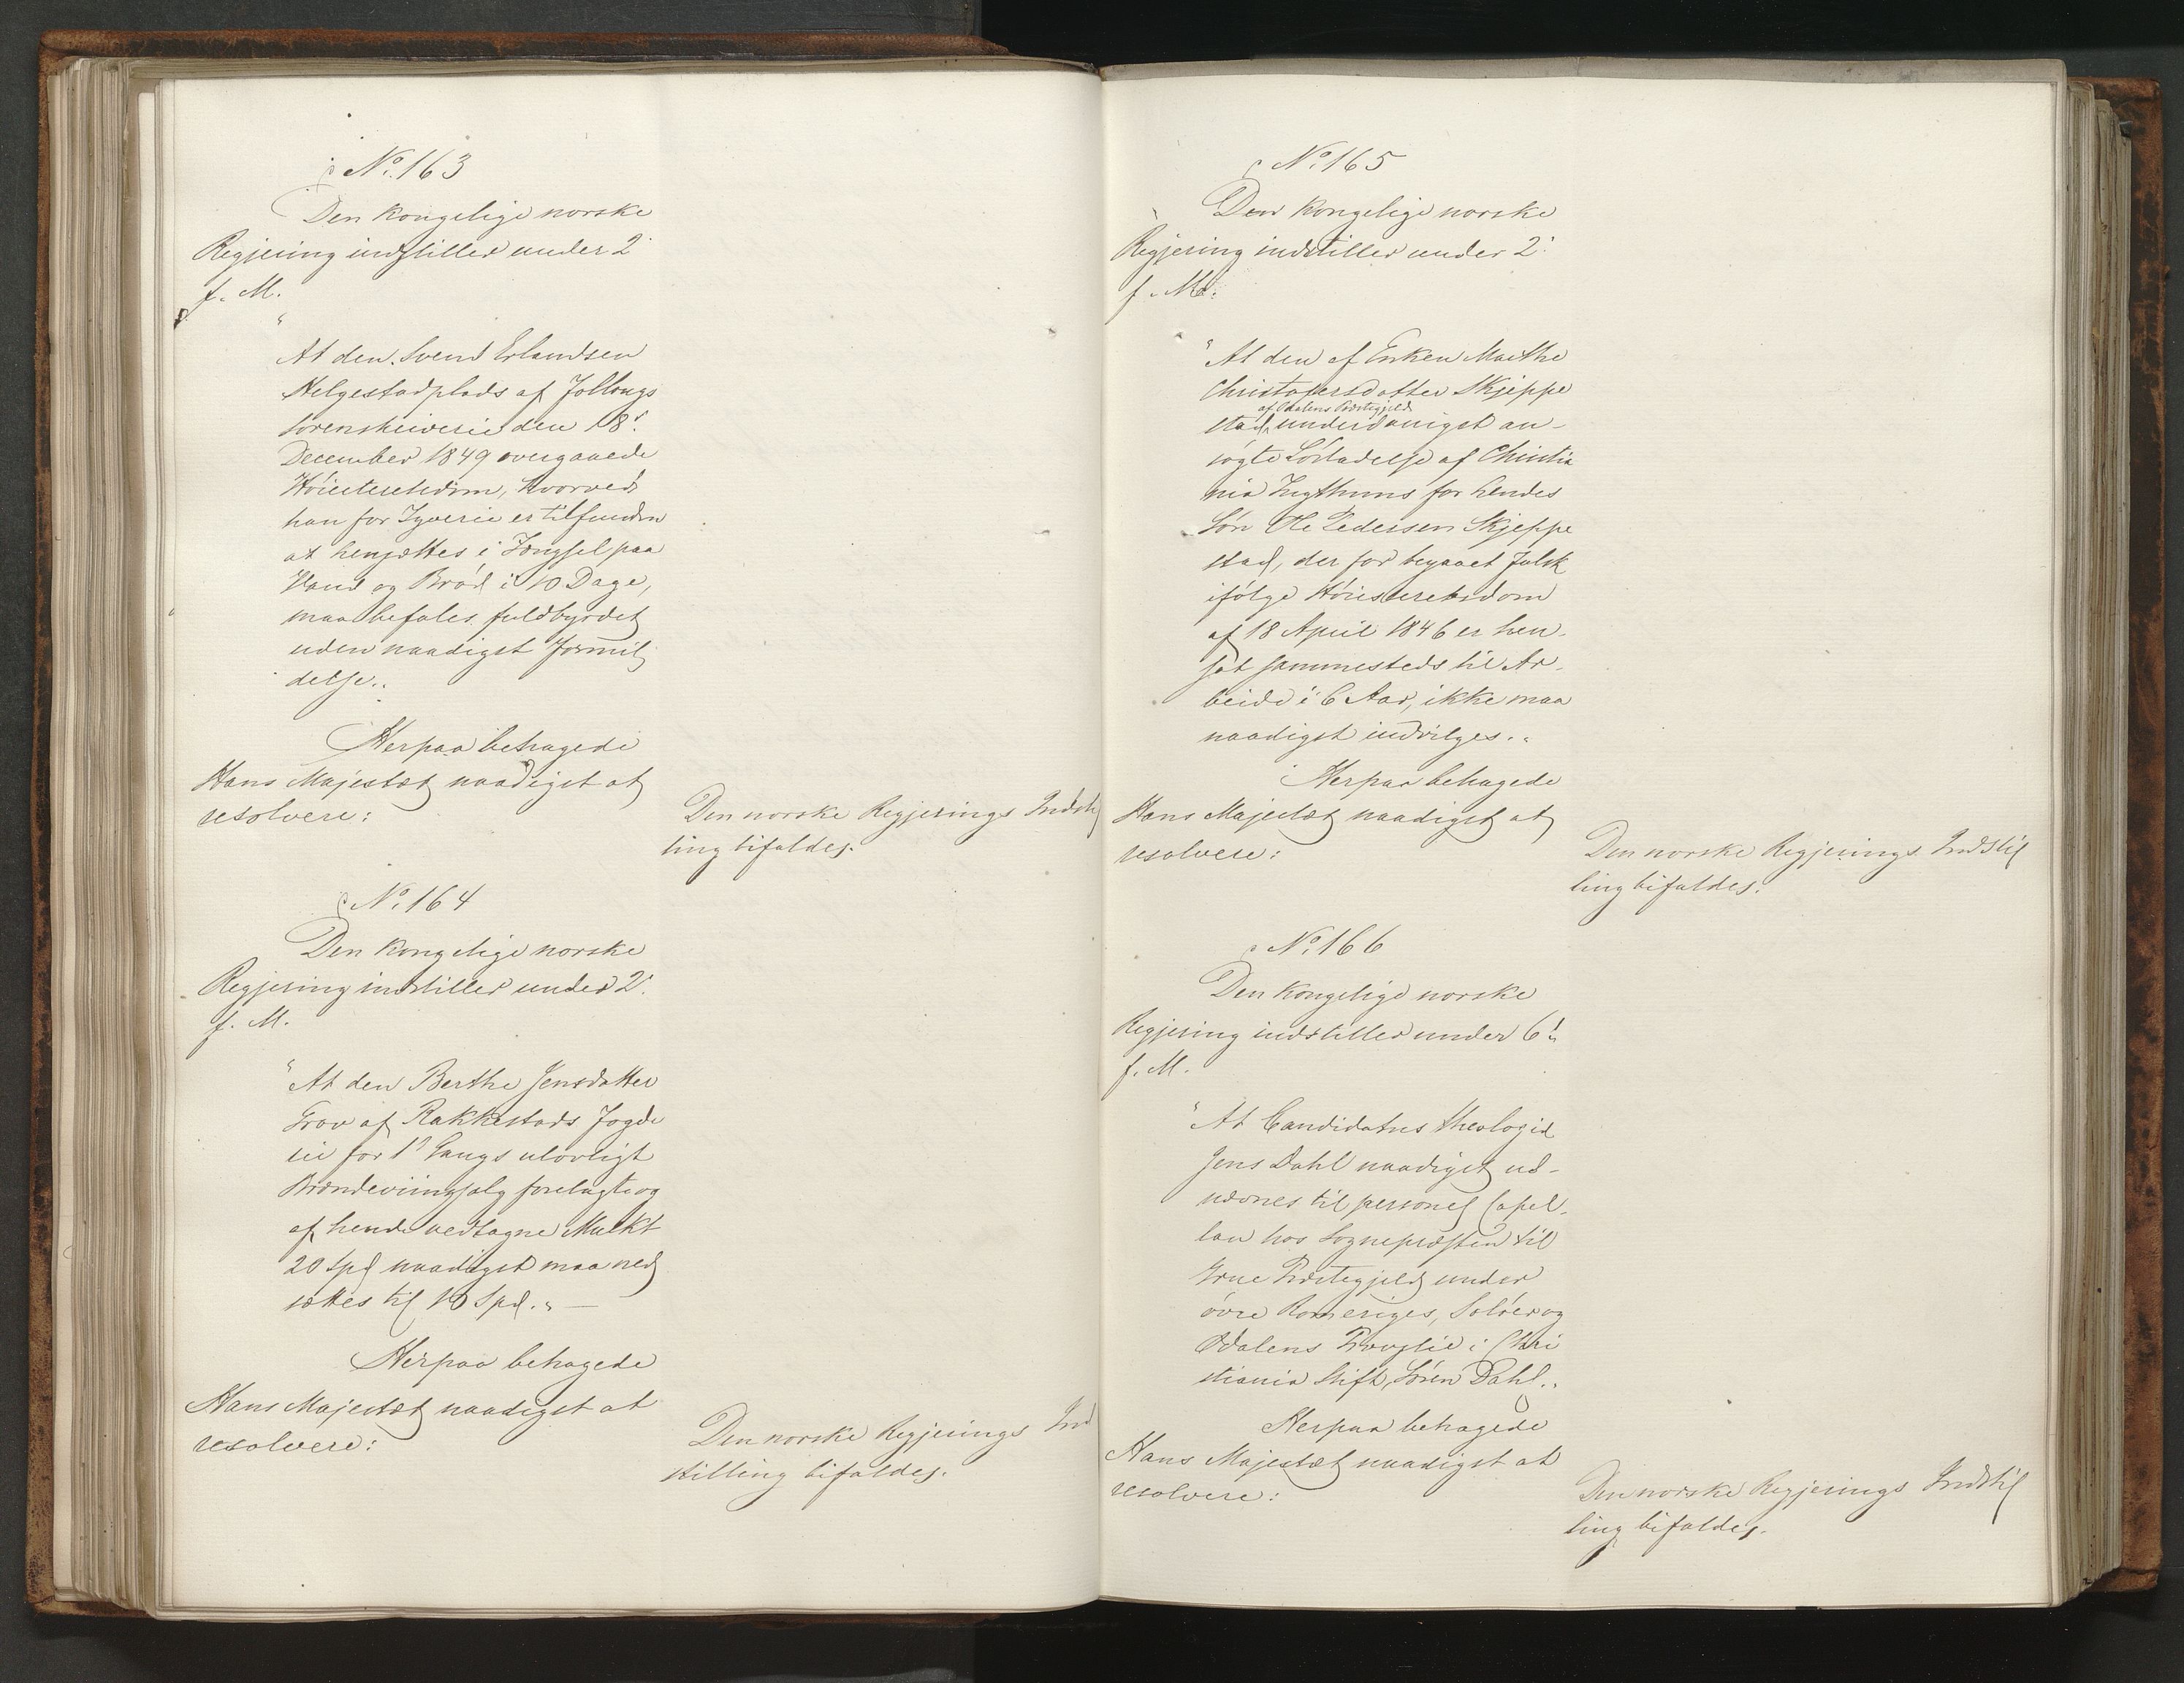 No. 163
Den kongelige norske
Regjering indstiller under 2'
f. M.
"At den Svend Erlandsen
Helgestadplads af Jolbugs
Sorenskriverie den 18'
December 1849 overgaaede
Höiesteretsdom, hvorved
han for Tyverie er tilfunden
at hensættes i Fængsel paa
Vand og Bröd i 10 Dage,
maa befales fuldbyrdet
uden naadigst Formil
delse."
Herpaa behagede
Hans Majestæt naadigst at
resolvere:
Den norske Regjerings Indstil
ling bifaldes.
No. 164
Den kongelige norske
Regjering indstiller under 2'
f. M.
"At den Berthe Jensdatter
Grav af Rakkestads Fogde
rie for 1' Gangs ulovligt
Brændeviinssalg forelagte og
af hende vedtagne Mulkt
20 Spd naadigst maa ned
sættes til 10 Spd." —
Herpaa behagede
Hans Majestæt naadigst at
resolvere:
Den norske Regjerings Ind
stilling bifaldes.
No. 165
Den kongelige norske
Regjering indstiller under 2'
f. M.
"At den af Enken Marthe
Christofersdatter Skjeppe
af Odalens Præstegjeld
stad underdanigst an-
sögte Lösladelse af Christia
nia Tugthuus for hendes
Sön Ole Pedersen Skjeppe
stad, der for begaaet Falsk
ifölge Höiesteretsdom
af 18 April 1846 er hen-
sat sammesteds til Ar-
beide i 6 Aar, ikke maa
naadigst indvilges."
Herpaa behagede
Hans Majestæt naadigst at
resolvere:
Den norske Regjerings Indstil
ling bifaldes.
No. 166
Den kongelige norske
Regjering indstiller under 6'
f. M.
"At Candidatus theologiæ
Jens Dahl naadigst ud-
nævnes til personel Capel-
lan hos Sognepræsten til
Grue Præstegjeld under
övre Romeriges, Solöer og
Odalens Provstie i Chri
stiania Stift, Sören Dahl."
Herpaa behagede
Hans Majestæt naadigst at
resolvere:
Den norske Regjerings Indstil
ling bifaldes.